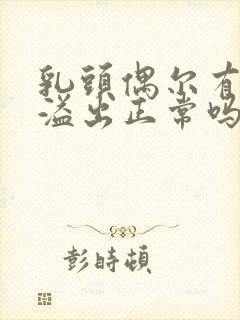 乳頭偶尔有
溢出正常吗
彭時頓